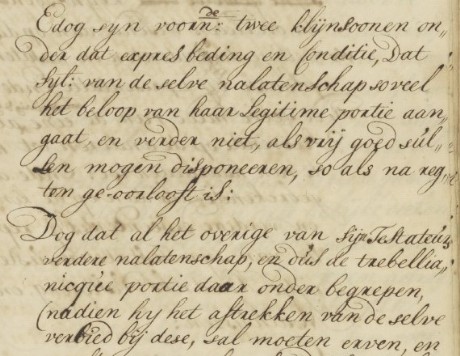 Edog syn voorn:de twee klijnsoonen on„
der dat expres beding en Conditie, Dat
Syl: van de selve nalatenschap soveel
het beloop van haar Legitime portie aan„
gaat, en verder niet, als vrij goed sul„
len mogen disponeeren, so als na reg„
ten ge-oorlooft is:
Dog dat al het overige van sijn Testateurs
verdere nalatenschap, en dus de trebellia„
nicque portie daar onder begrepen,
(nadien hy het aftrekken van de selve
verbied bij dese, sal moeten erven, en